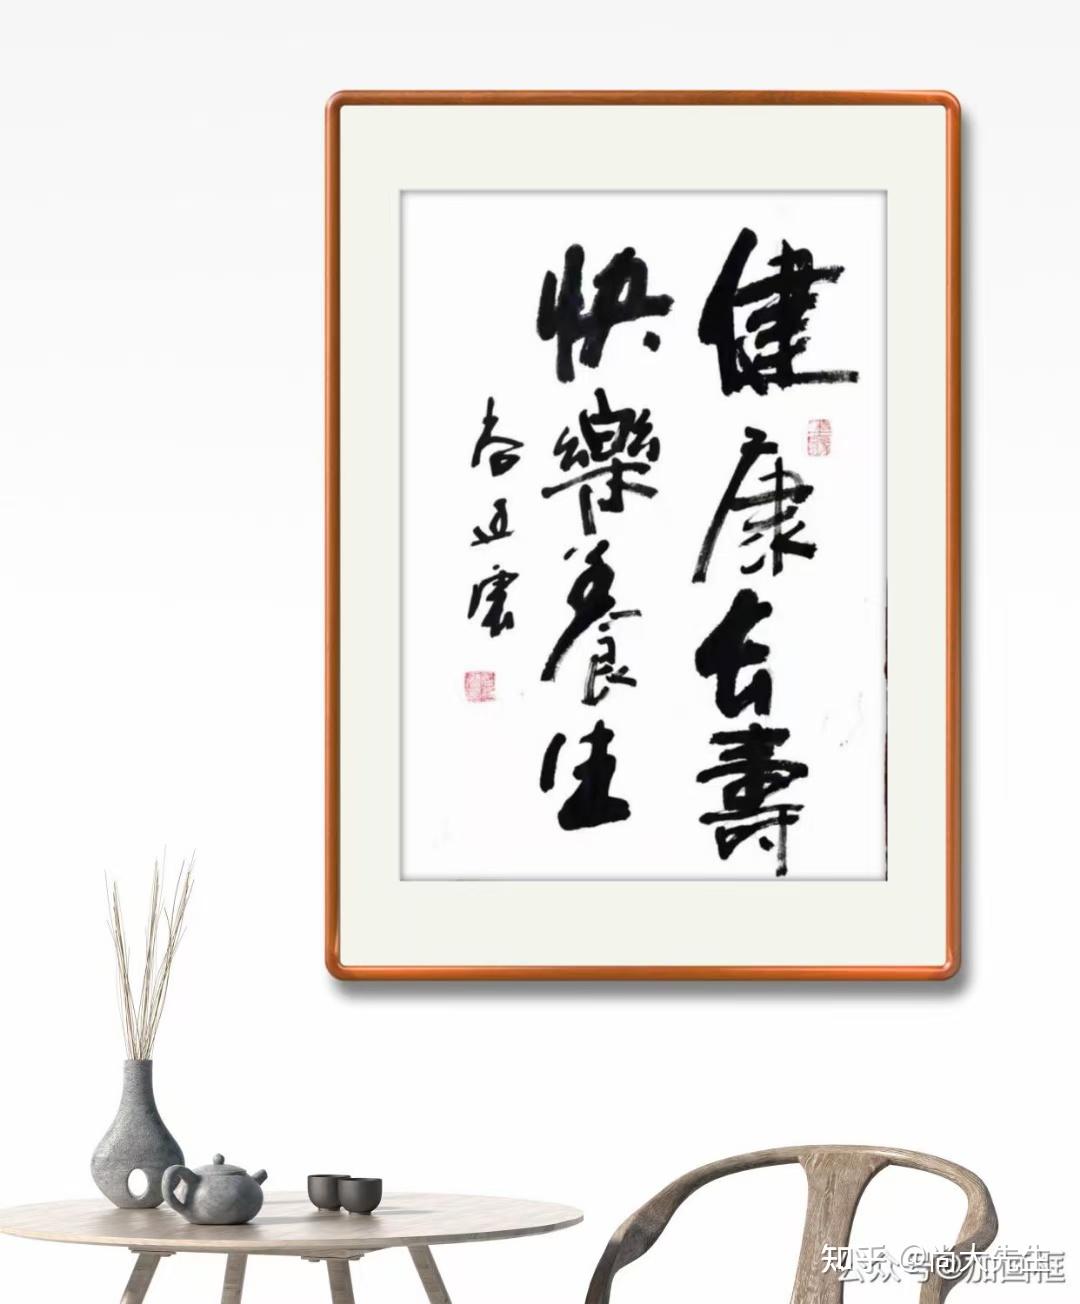 健康長壽
快樂養生
知乎 @尚大先生
公众号@加画框